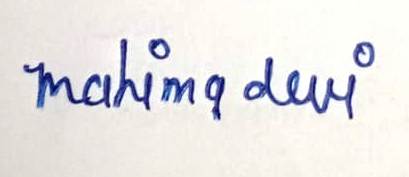 mahima devi